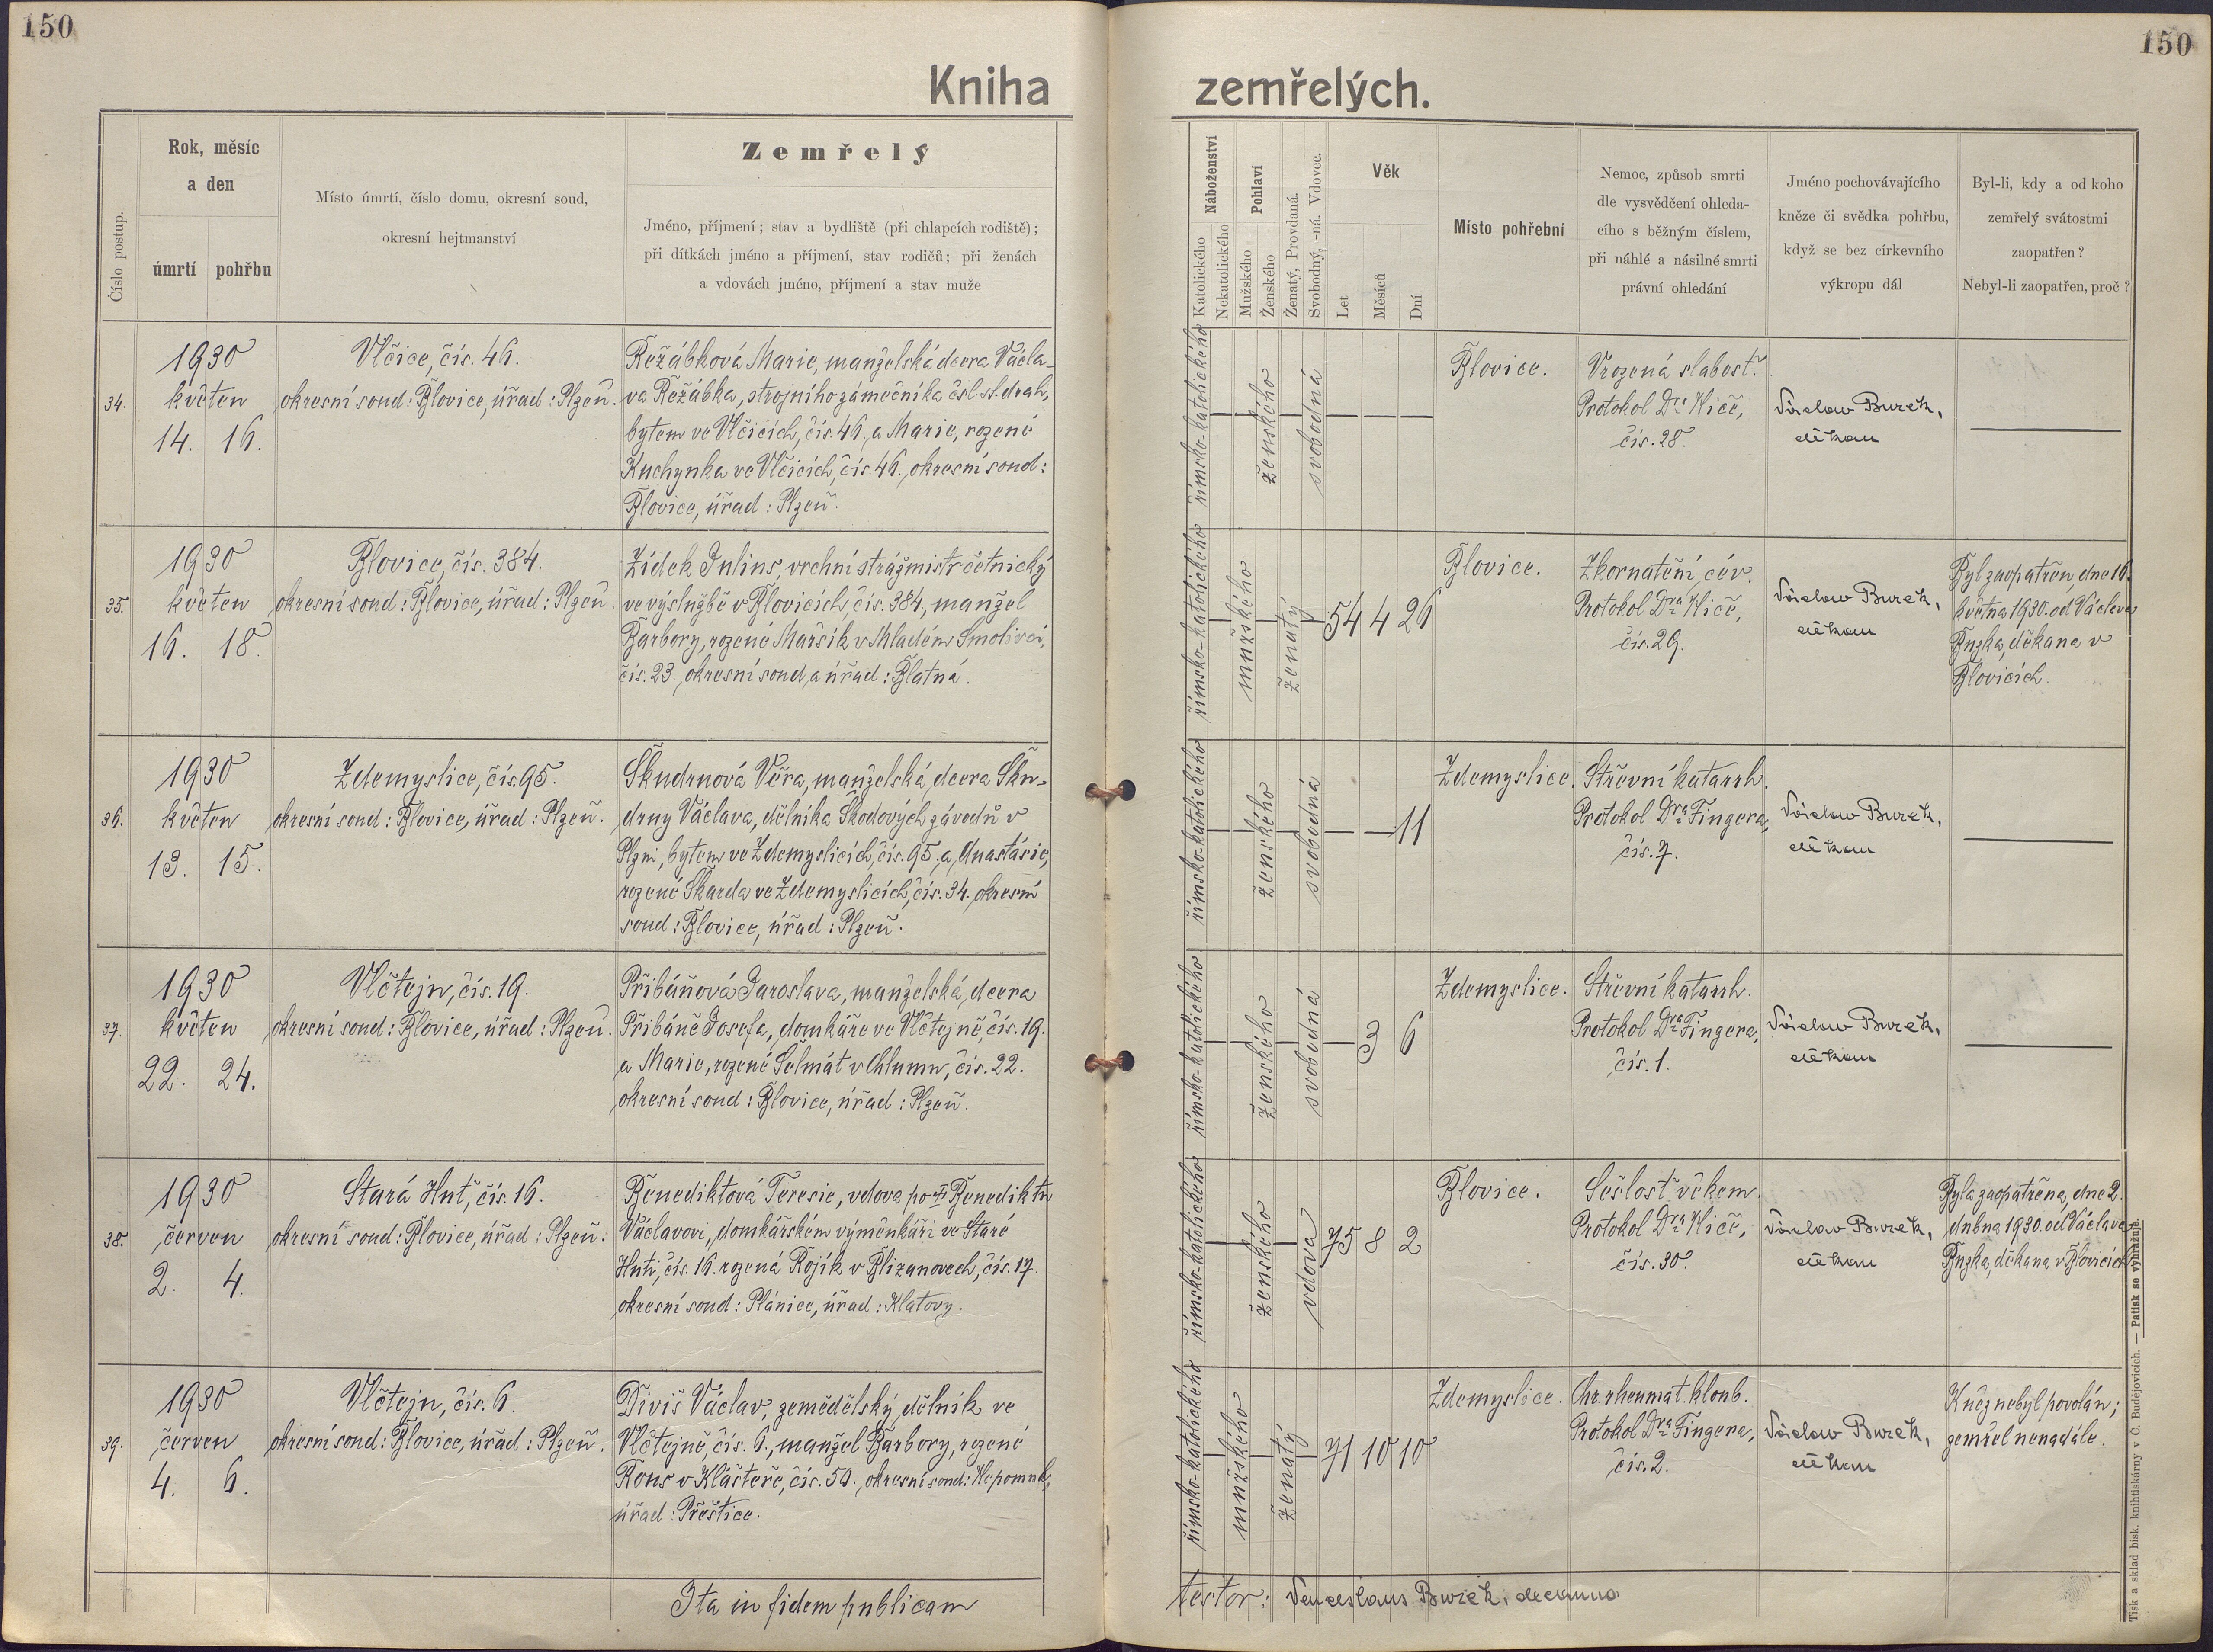 150
150
Kniha zemřelých.
Číslo postup.
Rok, měsíc
a den
úmrtí
pohřbu
Místo úmrtí, číslo domu, okresní soud,
okresní hejtmanství
Zemřelý
Jméno, příjmení; stav a bydliště (při chlapcích rodiště);
při dítkách jméno a příjmení, stav rodičů; při ženách
a vdovách jméno, příjmení a stav muže
Náboženství
Katolického
Nekatolického
Pohlaví
Mužského
Ženského
Ženatý, Provdaná.
Svobodný, -ná. Vdovec.
Věk
Let
Měsíců
Dní
Místo pohřební
Nemoc, způsob smrti
dle vysvědčení ohleda-
cího s běžným číslem,
při náhlé a násilné smrti
právní ohledání
Jméno pochovávajícího
kněze či svědka pohřbu,
když se bez církevního
výkropu dál
Byl-li, kdy a od koho
zemřelý svátostmi
zaopatřen?
Nebyl-li zaopatřen, proč?
34.
1930
květen
14. 16.
Vlčice, čís. 46.
okresní soud: Blovice, úřad: Plzeň.
Řežábková Marie, manželská dcera Václa-
va Řežábka, strojního zámečníka čsl. st. drah,
bytem ve Vlčicích, čís. 46., a Marie, rozené
Kuchynka ve Vlčicích, čís. 46., okresní soud:
Blovice, úřad: Plzeň.
římsko-katolického
ženského
svobodná
Blovice.
Vrozená slabost.
Protokol Dra Kliče,
čís. 28.
Václav Buzek,
děkan
35.
1930
květen
16. 18.
Blovice, čís. 384.
okresní soud: Blovice, úřad: Plzeň.
Zídek Julius, vrchní strážmistr četnický
ve výslužbě v Blovicích čís. 384, manžel
Barbory, rozené Maršík v Mladém Smolivci,
čís. 23., okresní soud, a úřad: Blatná.
římsko-katolického
mužského
ženatý
54 4 26
Blovice.
Zkornatění cév.
Protokol Dra Kliče,
čís. 29.
Václav Buzek,
děkan
Byl zaopatřen, dne 16.
května 1930. od Václava
Buzka, děkana v
Blovicích.
36.
1930
květen
13. 15.
Zdemyslice, čís. 95.
okresní soud: Blovice, úřad: Plzeň.
Škudrnová Věra, manželská, dcera Šku-
drny Václava, dělníka Škodových závodů v
Plzni, bytem ve Zdemyslicích, čís. 95., a, Anastásie,
rozené Škarda ve Zdemyslicích, čís. 34. okresní
soud: Blovice, úřad: Plzeň.
římsko-katolického
ženského
svobodná
11
Zdemyslice.
Střevní katarrh.
Protokol Dra Fingera,
čís. 7.
Václav Buzek,
děkan
37.
1930
květen
22. 24.
Vlčtejn, čís. 19.
okresní soud: Blovice, úřad: Plzeň.
Přibáňová Jaroslava, manželská, dcera
Přibáně Josefa, domkáře ve Vlčtejně, čís. 19.
a Marie, rozené Šelmát v Chlumu, čís. 22.
okresní soud: Blovice, úřad: Plzeň.
římsko-katolického
ženského
svobodná
3 6
Zdemyslice.
Střevní katarrh.
Protokol Dra Fingera,
čís. 1.
Václav Buzek,
děkan
38.
1930
červen
2. 4.
Stará Huť, čís. 16.
okresní soud: Blovice, úřad: Plzeň.
Benediktová Teresie, vdova po † Benediktu
Václavovi, domkářském výměnkáři ve Staré
Huti, čís. 16. rozená Rojík v Blizanovech, čís. 17.
okresní soud: Plánice, úřad: Klatovy.
římsko-katolického
ženského
vdova
75 8 2
Blovice.
Sešlost věkem.
Protokol Dra Kliče,
čís. 30.
Václav Buzek,
děkan
Byla zaopatřena, dne 2.
dubna 1930. od Václava
Buzka, děkana v Blovicích.
39.
1930
červen
4. 6.
Vlčtejn, čís. 6.
okresní soud: Blovice, úřad: Plzeň.
Diviš Václav, zemědělský dělník ve
Vlčtejně, čís. 6., manžel Barbory, rozené
Rous v Klášteře, čís. 50., okresní soud: Nepomuk,
úřad: Přeštice.
římsko-katolického
mužského
ženatý
71 10 10
Zdemyslice.
Chr. rheumat. kloub.
Protokol Dra Fingera,
čís. 2.
Václav Buzek,
děkan
Kněz nebyl povolán;
zemřel nenadále.
Ita in fidem publicam
testor: Venceslaus Buzek, decanus
Tisk a sklad bisk. knihtiskárny v Č. Budějovicích. — Patisk se vyhražuje.